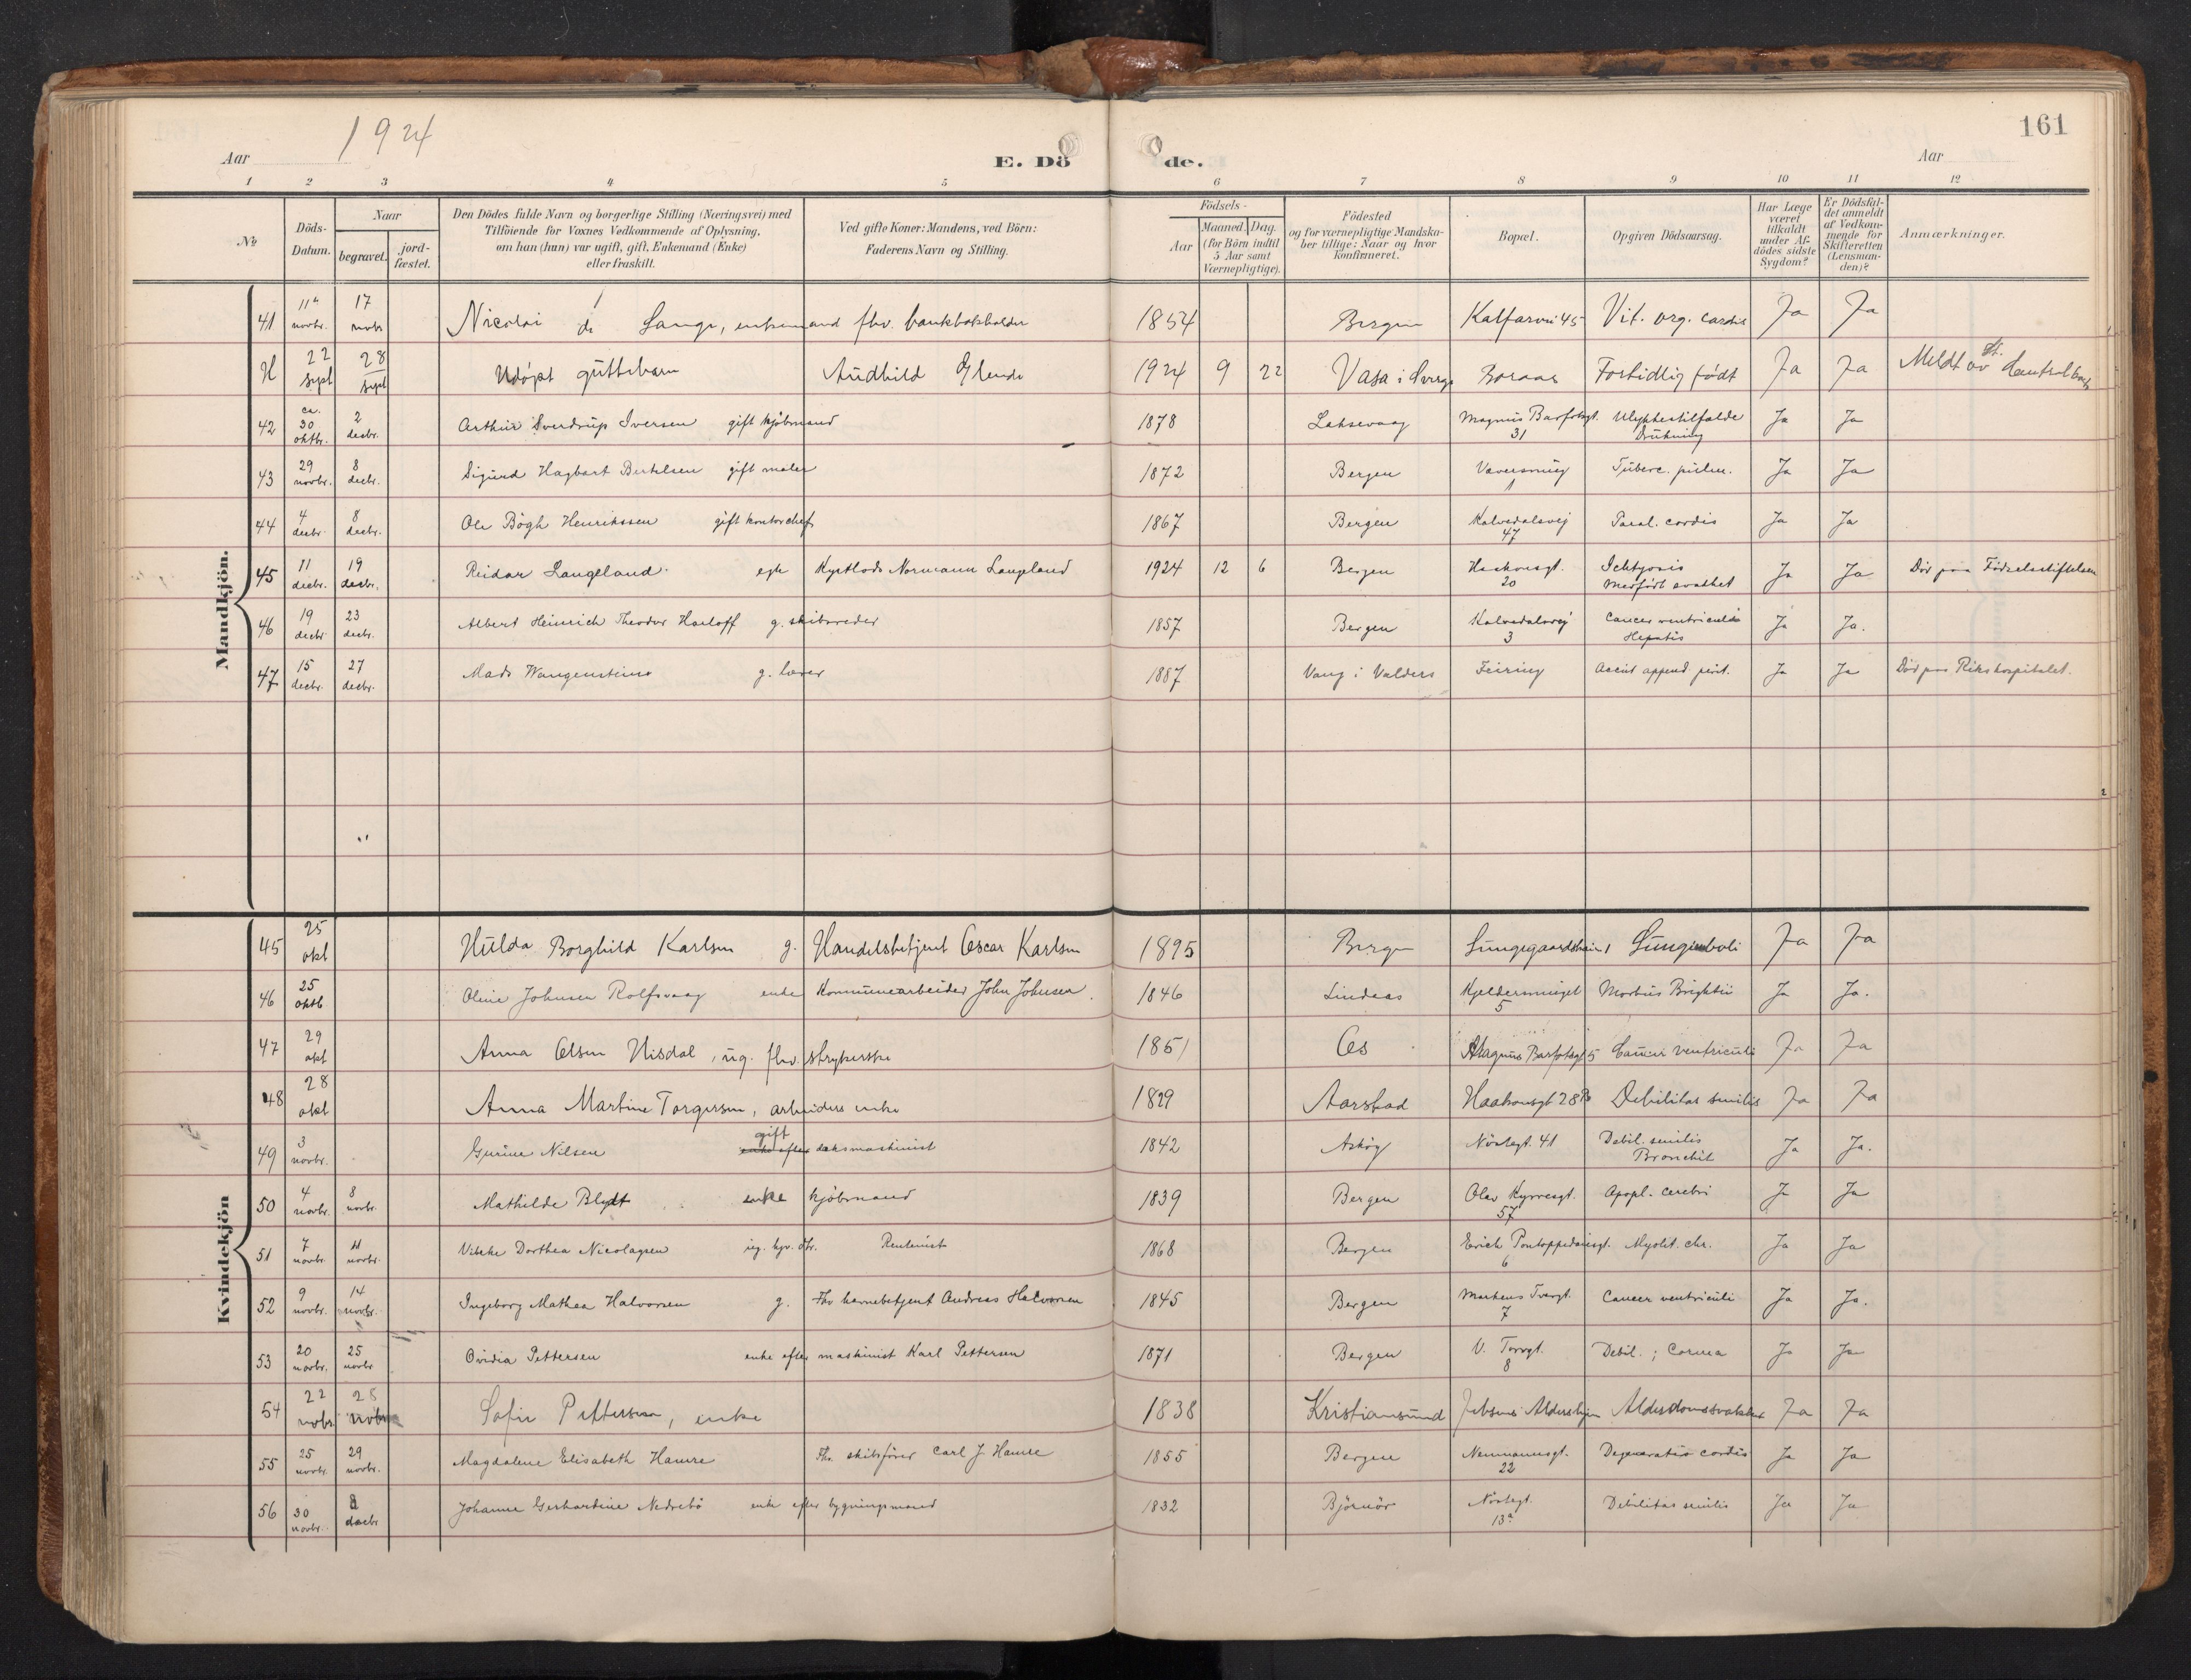 1924
161
Aar
E. Dö
de.
Aar
1 2 3 4 5 6 7 8 9 10 11 12
No
Döds-Datum.
Naar
begravet.
jord-fæstet.
Den Dödes fulde Navn og borgerlige Stilling (Næringsvei) med
Tilföiende for Voxnes Vedkommende af Oplysning,
om han (hun) var ugift, gift, Enkemand (Enke)
eller fraskilt.
Ved gifte Koner: Mandens, ved Börn:
Faderens Navn og Stilling.
Födsels-
Aar
Maaned. Dag.
(for Börn indtil
5 Aar samt
Værnepligtige).
Födested
og for værnepligtige Mandska-
ber tillige: Naar og hvor
konfirmeret.
Bopæl.
Opgiven Dödsaarsag.
Har Læge
været
tilkaldt
under Af-
dödes sidste
Sygdom?
Er Dödsfal-
det anmeldt
af Vedkom-
mende for
Skifteretten
(Lensman-
den)?
Anmærkninger.
Mandkjön.
41 11 novbr. 17 novbr Nicolai de Lange, enkemand fhv. bankbokholder 1854 Bergen Kalfarvei 45 Vit. org. cordis Ja Ja
H 22 sept 28 sept Udöpt guttebarn Audhild Glende 1924 9 22 Vasa i Sverge Boraas Fortidlig födt Ja Ja Meldt av St. Centralbyrå
42 ca. 30 oktbr. 2 decbr. Arthur Sverdrup Iversen gift kjöbmand 1878 Laksevaag Magnus Barfotsgt. 31 Ulykkestilfælde Drukning Ja Ja
43 29 novbr. 8 decbr. Sigurd Hagbart Bertelsen gift maler 1872 Bergen Væversmug 1 Tuberc. pulm. Ja Ja
44 4 decbr. 8 decbr. Ole Bögh Henrikssen gift kontorchef 1867 Bergen Kalvedalsvej 47 Paral. cordis Ja Ja
45 11 decbr. 19 decbr. Reidar Langeland egte Normann Langeland 1924 12 6 Bergen Haakonsgt. 20 Ichtyosis Medfödt svakhet Ja Ja Död paa Födselsstiftelsen
46 19 decbr 23 decbr. Albert Heinrich Theodor Harloff g. skibsreder 1857 Bergen Kalvedalsvej 3 Cancer ventriculi Hepatis Ja Ja.
47 15 decbr. 27 decbr. Mads Wangensteins g. lærer 1887 Vang i Valders Feiring Accut append. perit. Ja Ja Död paa Rikshospitalet.
Kvindekjön
45 25 okt Hulda Borghild Karlsen g. Handelsbetjent Oscar Karlsen 1895 Bergen Lungegaardskaien 1 Lungeemboli Ja Ja
46 25 oktb Oline Johnsen Rolfsvaag enke Kommunearbeider John Johnsen. 1846 Lindaas Kjeldersmuget 5 Morbus Brightii Ja Ja.
47 29 okt Anna Olsen Hisdal, ug. fhv. strykerske 1851 Os Magnus Barfotsgt 5 Cancer ventriculi Ja Ja
48 28 okt Anna Martine Torgersen, arbeiders enke 1829 Aarstad Haakonsgt 28 B Debilitas senilis Ja Ja
49 3 novbr. Gurine Nilsen gift enke efter dæksmaskinist 1842 Asköy Nöstegt. 41 Debil. senilis Bronchit Ja Ja.
50 4 novbr. 8 novbr. Mathilde Blydt enke kjöbmand 1839 Bergen Olav Kyrresgt. 57 Apopl. cerebri Ja Ja
51 7 novbr 11 novbr. Vibeke Dorthea Nicolaysen ug. hjv. dtr. Rentenist 1868 Bergen Erich Pontoppidansgt. 6 Myelit. chr. Ja Ja
52 9 novbr. 14 novbr. Ingeborg Mathea Halvorsen g. Fhv havnebetjent Andreas Halvorsen 1845 Bergen Markens Tvergt. 7 Cancer ventriculi Ja Ja.
53 20 novbr. 25 novbr Ovidia Pettersen enke efter maskinist Karl Pettersen 1871 Bergen V. Torvgt. 8 Debil. ; Coma Ja Ja
54 22 nobr. 28 novbr Sofie Pettersen, enke 1838 Kristiansund Jebsens Aldershjem Alderdomssvakhet Ja Ja
55 25 novbr. 29 novbr. Magdalene Elisabeth Hamre Fhv. skibsförer Carl J Hamre 1855 Bergen Neumannsgt. 22 Degeneratio cordis Ja Ja
56 30 novbr. 8 decbr Johanne Gerhardine Nedrebö enke efter bygningsmand 1832 Björnör Nöstegt. 13a Debilitas senilis Ja Ja